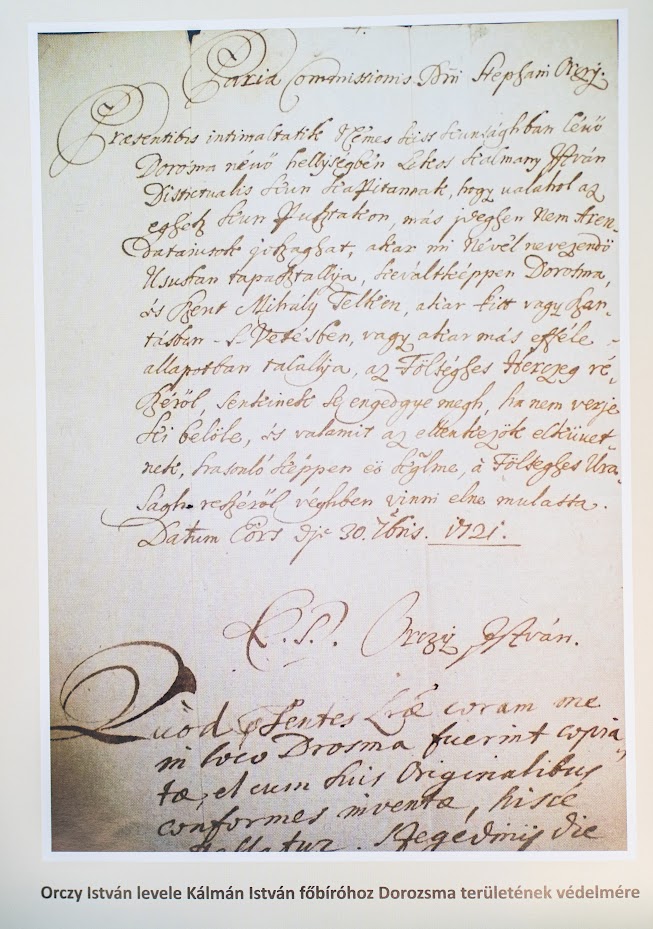 Paria Commissionis Dni Stephani Orczy.
Præsentibus intimaltatik Nemes Kiss Kunsághban lévő
Dorosma névű hellységben Lakos Kalmany István
Districtualis Kun Kapitannak, hogy valahol az
egész Kun Pusztakon, más idegen Nem Aren-
datariusok joszaghat, akar mi Névél nevezendő
Ususban tapasztallya, kevaltképpen Dorosma,
és Szent Mihály Telken, akar Fitt vagy Szan-
tásban s Vetésben, vagy akar más efféle
allapotban talallya, az Fölséghes Herczeg ré-
széről, senkinek se engedgye megh, ha nem verje
ki belöle, és valamit az ellenkezők elkövet-
nek, hasonló képpen eő kglme, à Fölséghes Ura-
ságh részéről véghben vinni elne mulassa.
Datum Eörs die 30. 7bris. 1721.
L. S. Orczy István.
Quòd præsentes Lræ coram me
in loco Drosma fuerint copia
tæ, et cum suis Originalibus
conformes inventæ, hisce
Szegedinij die
Orczy István levele Kálmán István főbíróhoz Dorozsma területének védelmére